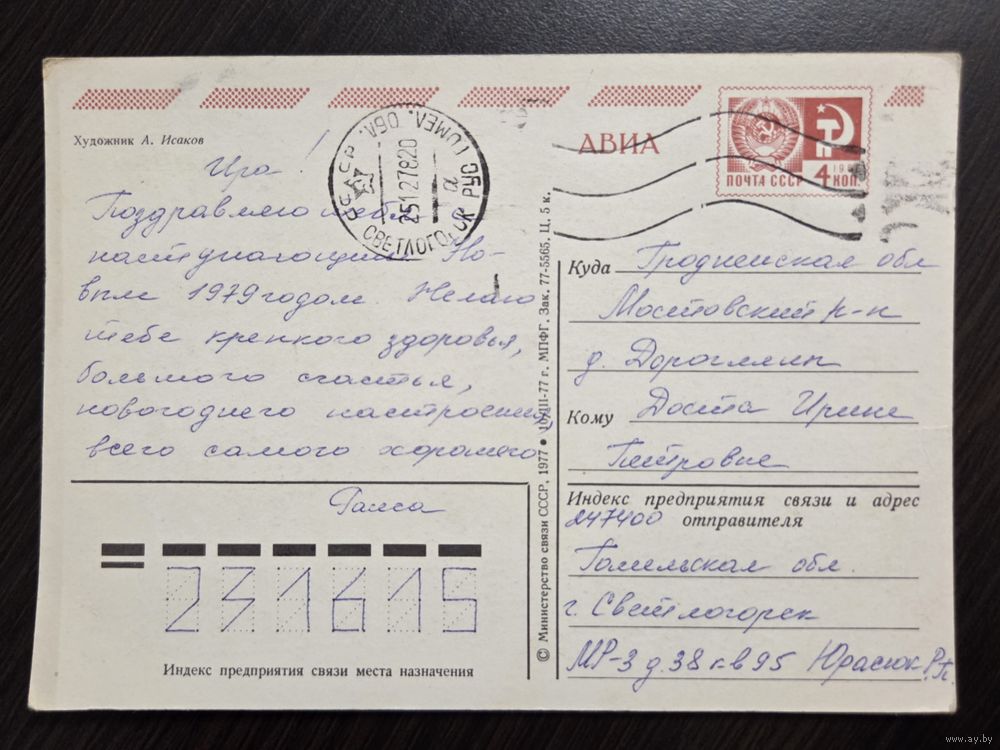 Художник А. Исаков
Ира!
Поздравляю тебя с
наступающим Но-
вым 1979 годом. Желаю
тебе крепкого здоровья,
большого счастья,
новогоднего настроения,
всего самого хорошего
Раиса
231615
Индекс предприятия связи места назначения
© Министерство связи СССР. 1977 • 10/III-77 г. МПФГ. Зак. 77-5565. Ц. 5 к.
СССР
25127820
а
СВЕТЛОГОРСК
ГОМЕЛ. ОБЛ.
АВИА
ПОЧТА СССР 4 КОП.
Куда Гродненская обл
Мостовский р-н
д.
Кому Доста Ирине
Петровне
Индекс предприятия связи и адрес
247400 отправителя
Гомельская обл.
г. Светлогорск
МР-3 д. 38 кв 95 Юрасюк Р. П.
www.ay.by